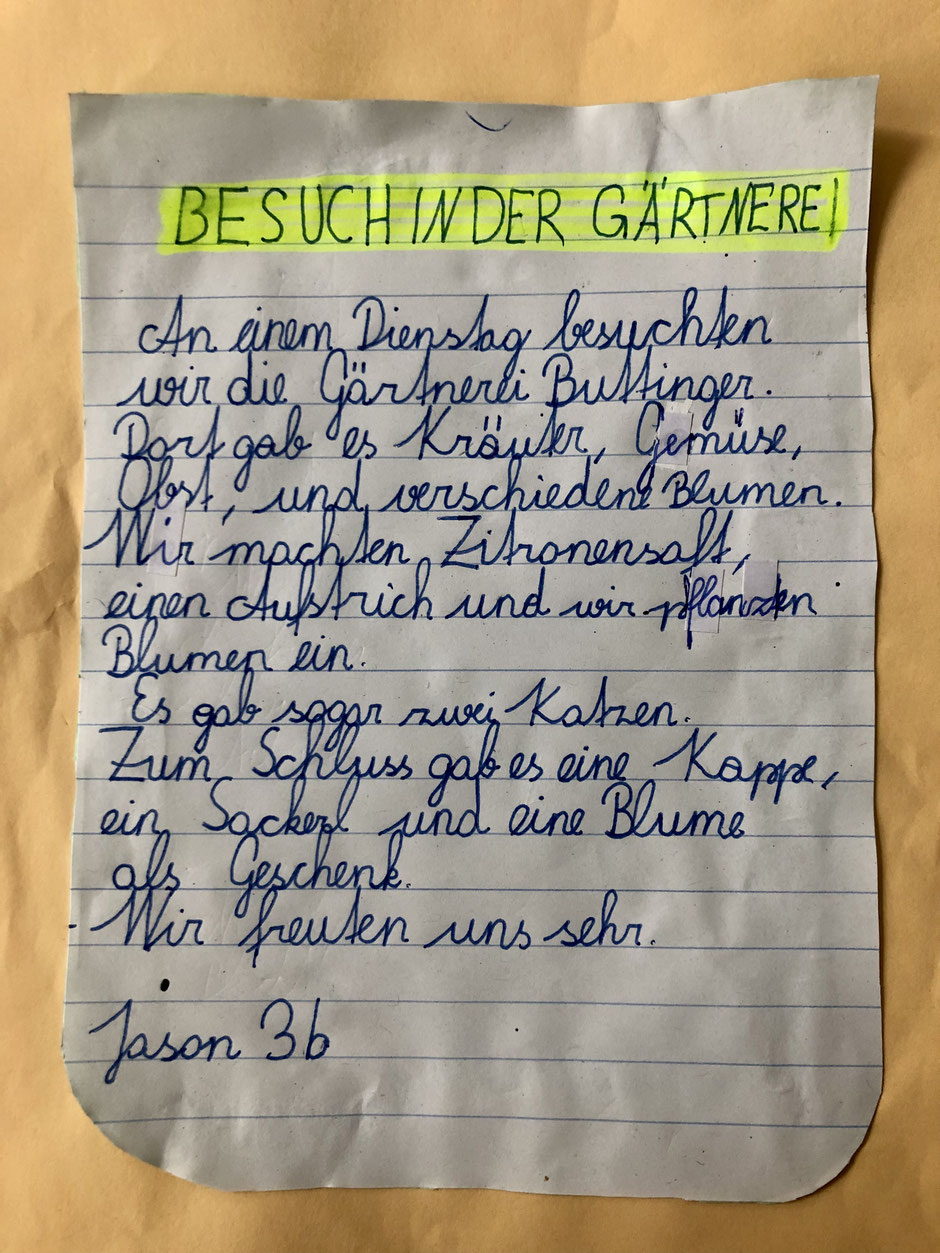 BESUCH IN DER GÄRTNEREI
An einem Dienstag besuchten
wir die Gärtnerei Buttinger.
Dort gab es Kräuter, Gemüse,
Obst, und verschiedene Blumen.
Wir machten Zitronensaft,
einen Aufstrich und wir pflanzten
Blumen ein.
Es gab sogar zwei Katzen.
Zum Schluss gab es eine Kappe,
ein Sackerl und eine Blume
als Geschenk.
Wir freuten uns sehr.
Jason 3b